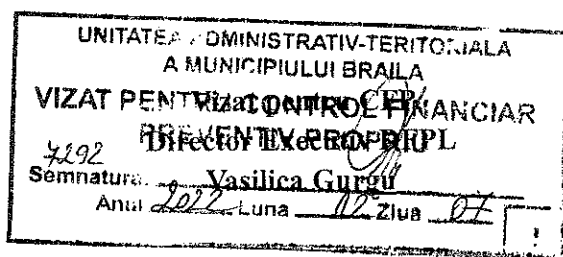 UNITATEA ADMINISTRATIV-TERITORIALA
A MUNICIPIULUI BRAILA
VIZAT PENTRU CONTROL FINANCIAR
Vizat pentru CFP
PREVENTIV PROPRIU
Director Executiv DFPL
7292
Semnatura. Vasilica Gurgu
Anul 2022 Luna 02 Ziua 07